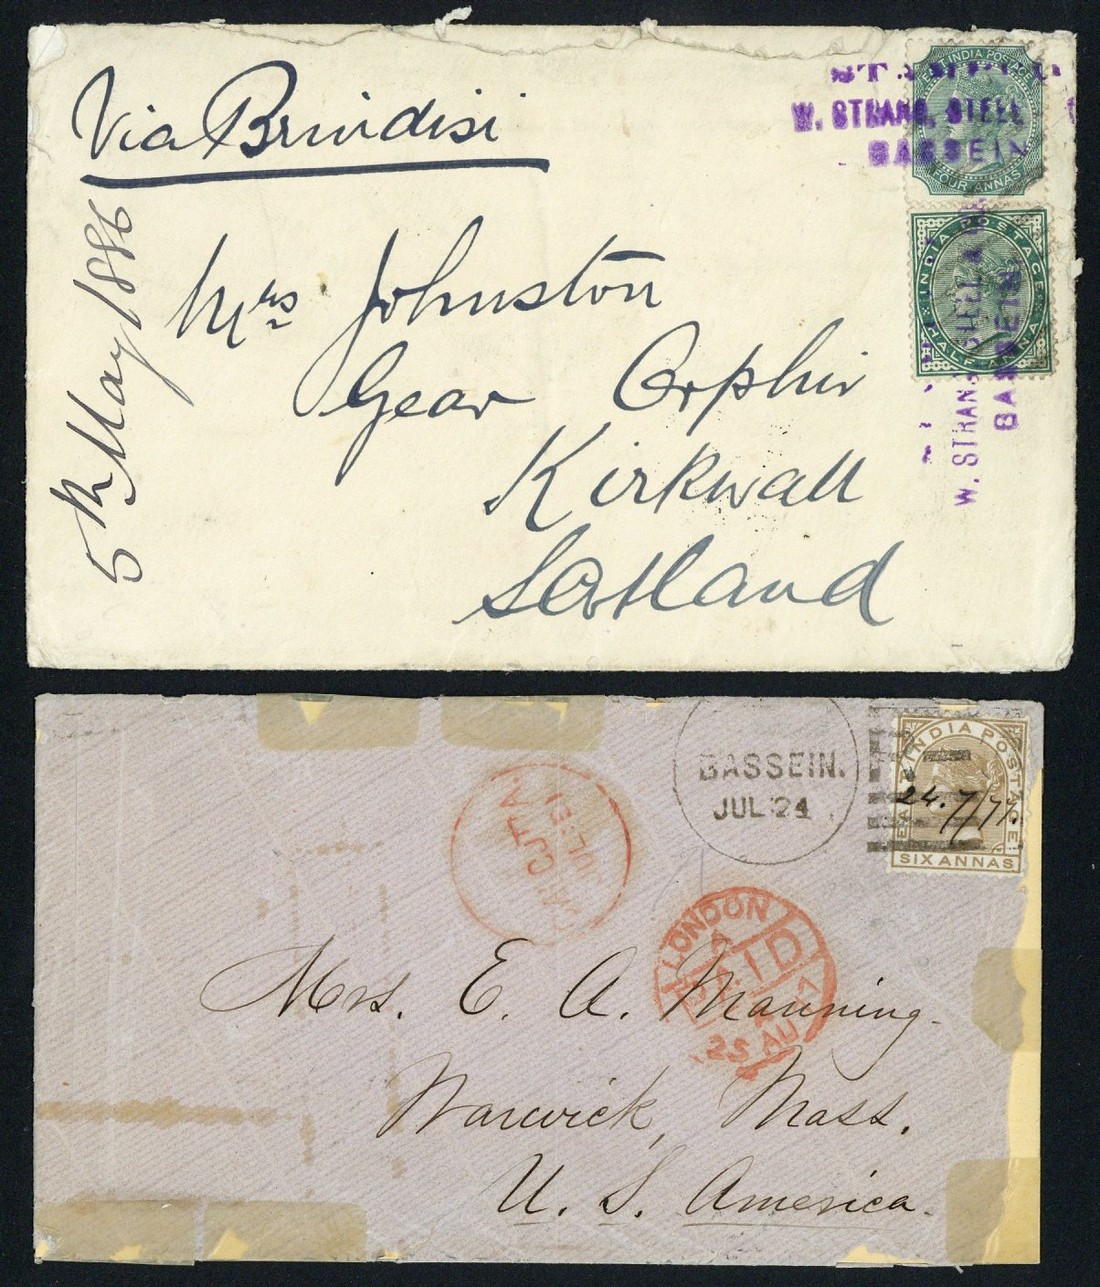 Via Brindisi
5th May 1886
Mrs Johnston
Gear Orphir
Kirkwall
Scotland
W. STRANG, STEEL
BASSEIN
EAST INDIA POSTAGE
FOUR ANNAS
INDIA POSTAGE
HALF ANNA
W. STRANG
BASSEIN.
BASSEIN.
JUL 24
EAST INDIA POSTAGE
SIX ANNAS
24.7/77.
LONDON
PAID
25 AU
Mrs. E. A. Manning.
Warwick, Mass.
U. S. America.